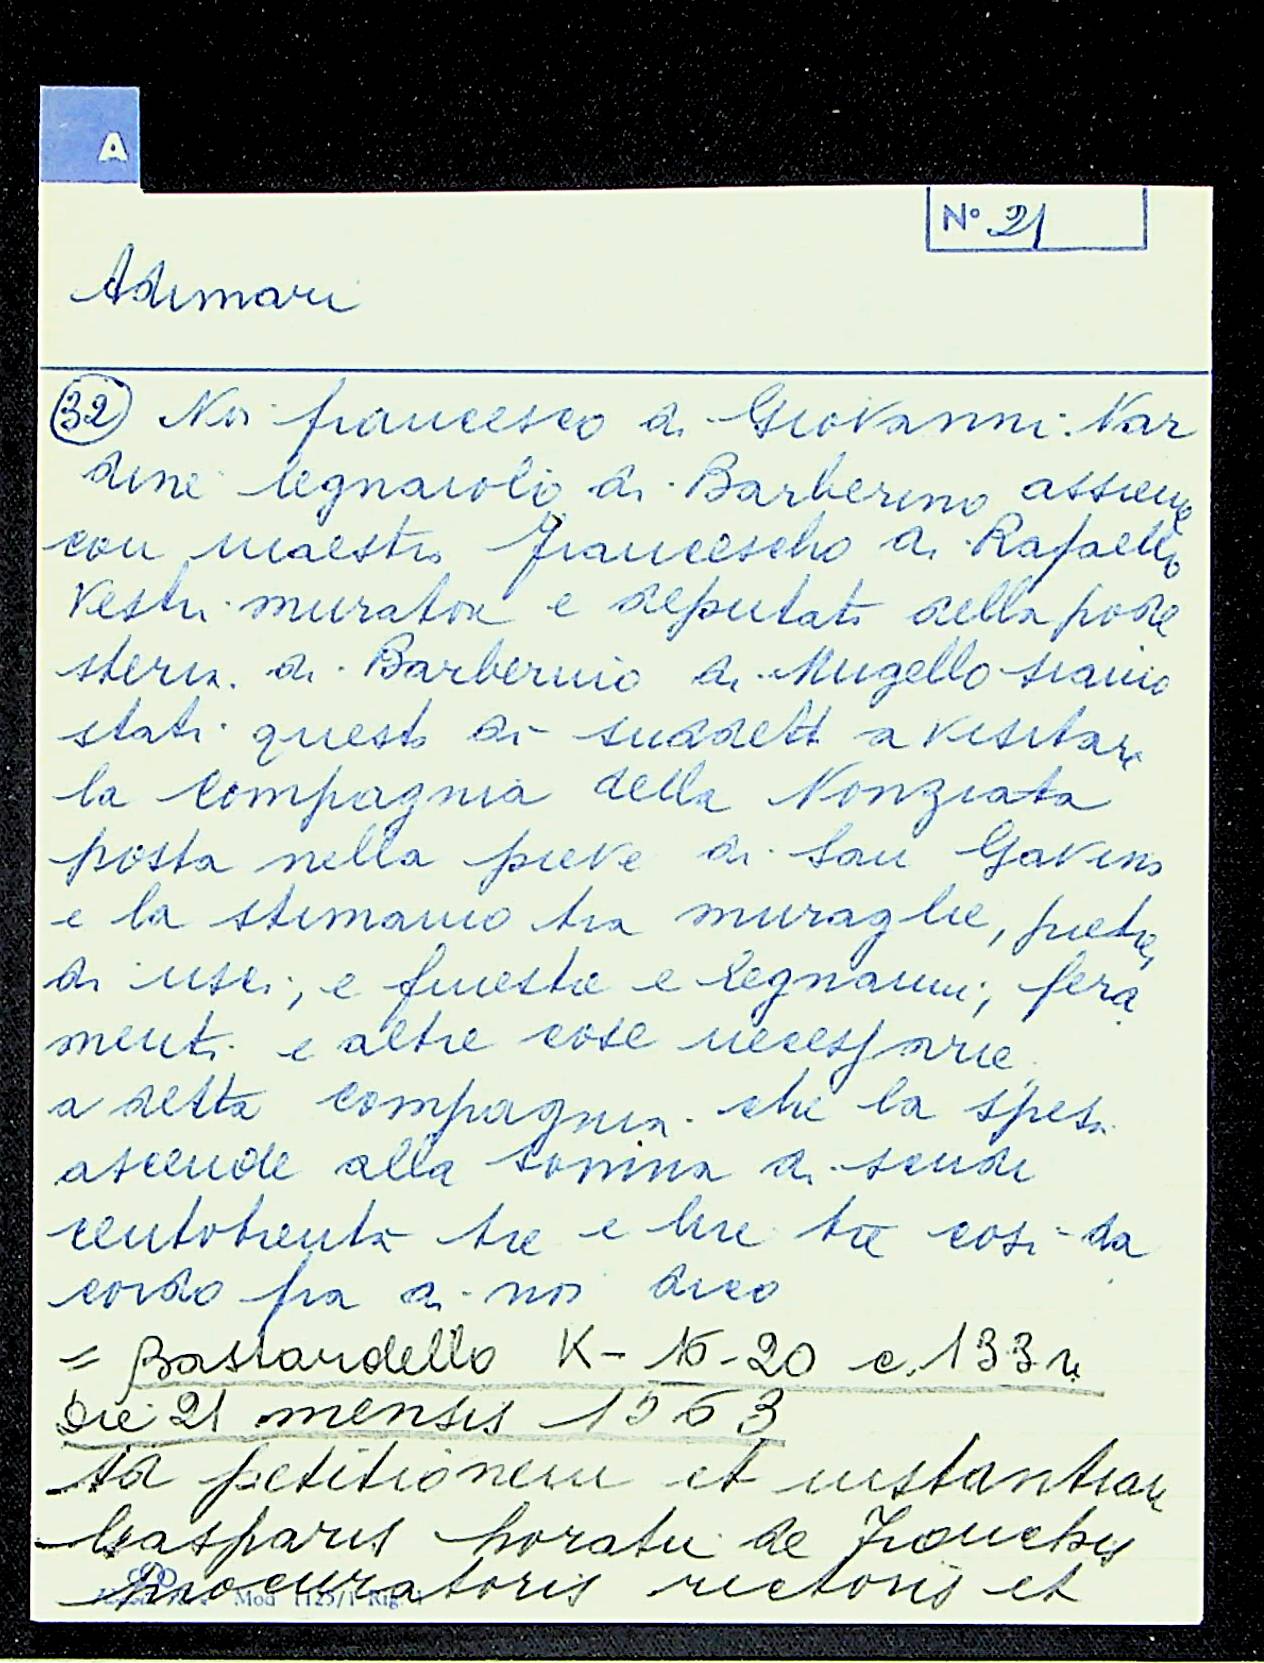 A
N° 21
Adimari
(32) Noi francesco di Giovanni Nar
dini legnaiolo di Barberino assieme
con maestro francescho di Rafaello
Vestri muratori e deputati della pode
steria di Barberino di Mugello siamo
stati questo dì suddett a visitare
la compagnia della Nonziata
posta nella pieve di San Gavino
e la stimamo tra muraglie, pietre,
di usci, e finestre e legnami, fera
menti e altre cose necessarie
a detta compagnia che la spesa
ascende alla somma di scudi
centotrenta tre e lire tre così da
cordo fra di noi dico
= Bastardello K-16-20 c. 133 r.
Die 21 mensis 1563
Ad petitionem et instantiam
Gasparis horatii de
procuratoris rectoris et
Mod 1125/1 Rig.